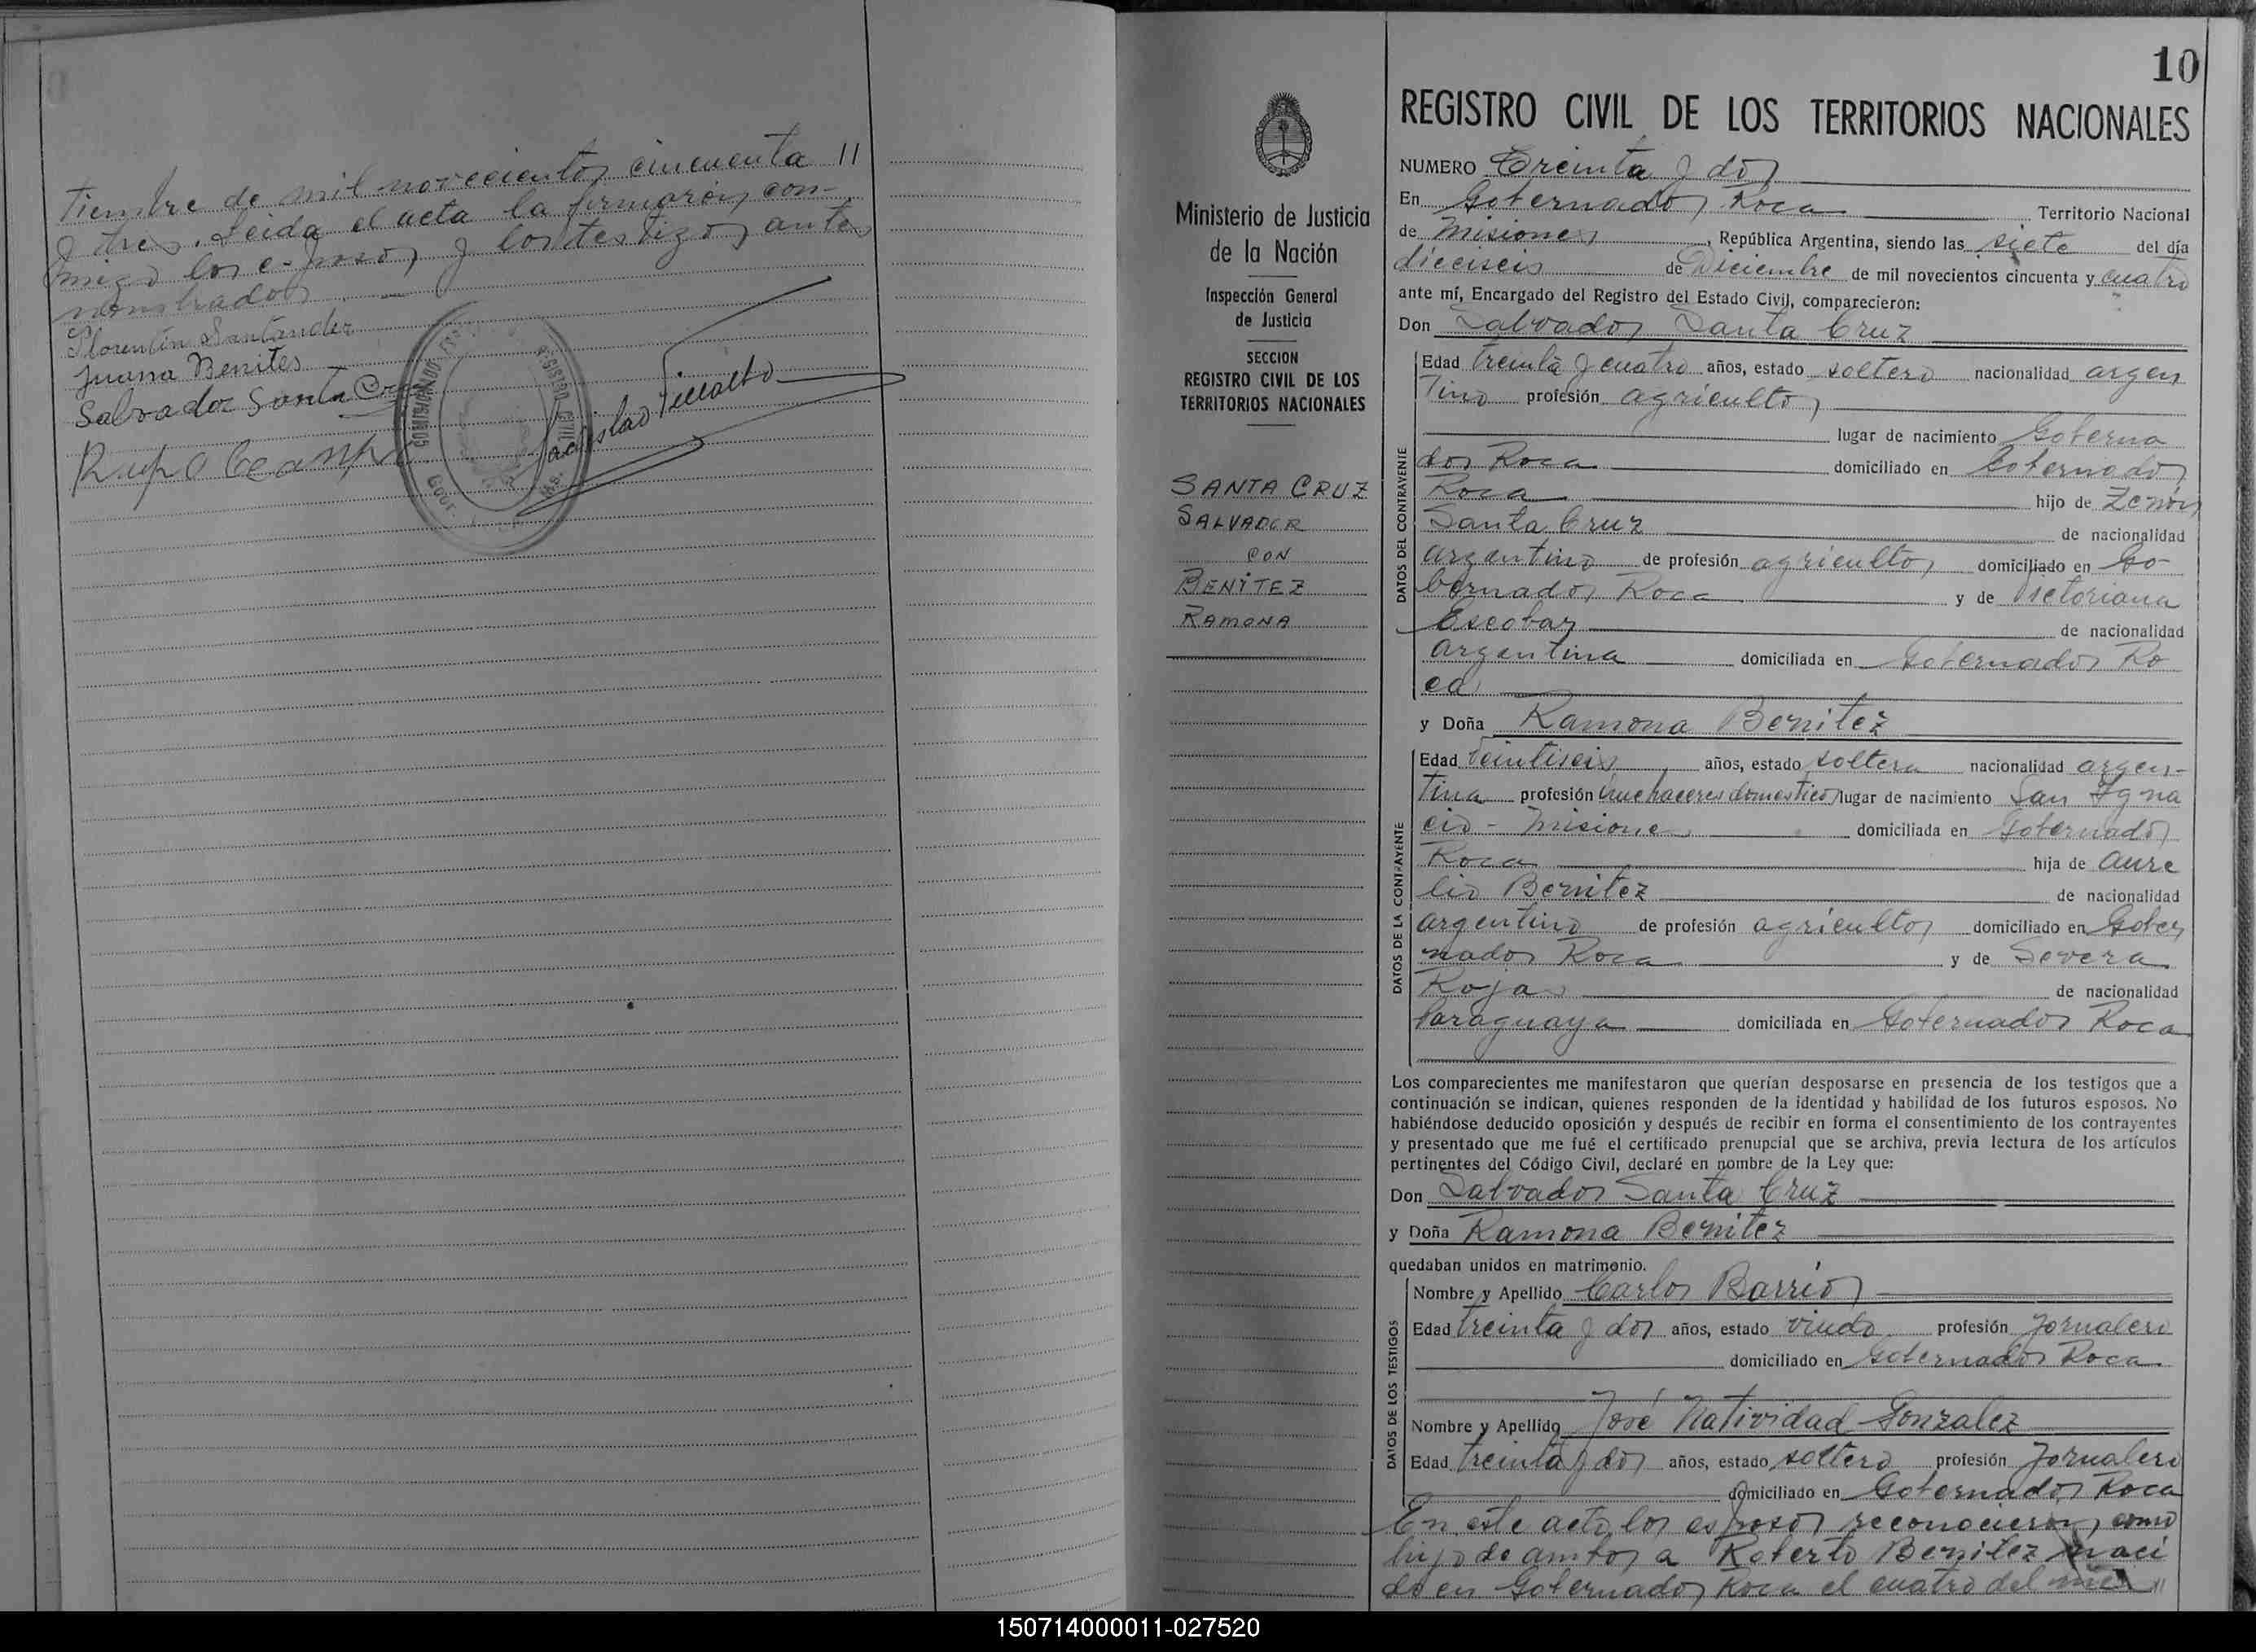 tiembre de mil novecientos cincuenta //
y tres. Leida el acta la firmaron, con-
migo los esposos y los testigos antes
nombrados
Florentin Santander
Juana Benites
Salvador Santa Cruz
COMISION DE FO
REGISTRO CIVIL
GOOR.
Ms.
Ladislao Villalto
10
REGISTRO CIVIL DE LOS TERRITORIOS NACIONALES
Ministerio de Justicia
de la Nación
Inspección General
de Justicia
SECCION
REGISTRO CIVIL DE LOS
TERRITORIOS NACIONALES
SANTA CRUZ
SALVADOR
CON
BENITEZ
RAMONA
NUMERO Treinta y dos
En Gobernador Roca Territorio Nacional
de Misiones, República Argentina, siendo las siete del día
dieciseis de Diciembre de mil novecientos cincuenta y cuatro
ante mí, Encargado del Registro del Estado Civil, comparecieron:
Don Salvador Santa Cruz
DATOS DEL CONTRAYENTE
Edad treinta y cuatro años, estado soltero nacionalidad argen
tino profesión agricultor
lugar de nacimiento Goberna
dor Roca domiciliado en Gobernador
Roca hijo de Zenón
Santa Cruz de nacionalidad
argentino de profesión agricultor domiciliado en Go-
bernador Roca y de Victoriana
Escobar de nacionalidad
argentina domiciliada en Gobernador Ro
ca
y Doña Ramona Benitez
DATOS DE LA CONTRAYENTE
Edad veintiseis años, estado soltera nacionalidad argen-
tina profesión quehaceres domesticos lugar de nacimiento San Igna
cio - Misiones domiciliada en Gobernador
Roca hija de Aure
lio Benitez de nacionalidad
argentino de profesión agricultor domiciliado en Gober
nador Roca y de Severa
Rojas de nacionalidad
Paraguaya domiciliada en Gobernador Roca
Los comparecientes me manifestaron que querían desposarse en presencia de los testigos que a
continuación se indican, quienes responden de la identidad y habilidad de los futuros esposos. No
habiéndose deducido oposición y después de recibir en forma el consentimiento de los contrayentes
y presentado que me fué el certificado prenupcial que se archiva, previa lectura de los artículos
pertinentes del Código Civil, declaré en nombre de la Ley que:
Don Salvador Santa Cruz
y Doña Ramona Benitez
quedaban unidos en matrimonio.
DATOS DE LOS TESTIGOS
Nombre y Apellido Carlos Barrios
Edad treinta y dos años, estado viudo profesión Jornalero
domiciliado en Gobernador Roca
Nombre y Apellido José Natividad Gonzalez
Edad treinta y dos años, estado soltero profesión Jornalero
domiciliado en Gobernador Roca
En este acto los esposos reconocieron, como
hijo de ambos a Roberto Benitez naci
do en Gobernador Roca el cuatro del mes //
150714000011-027520